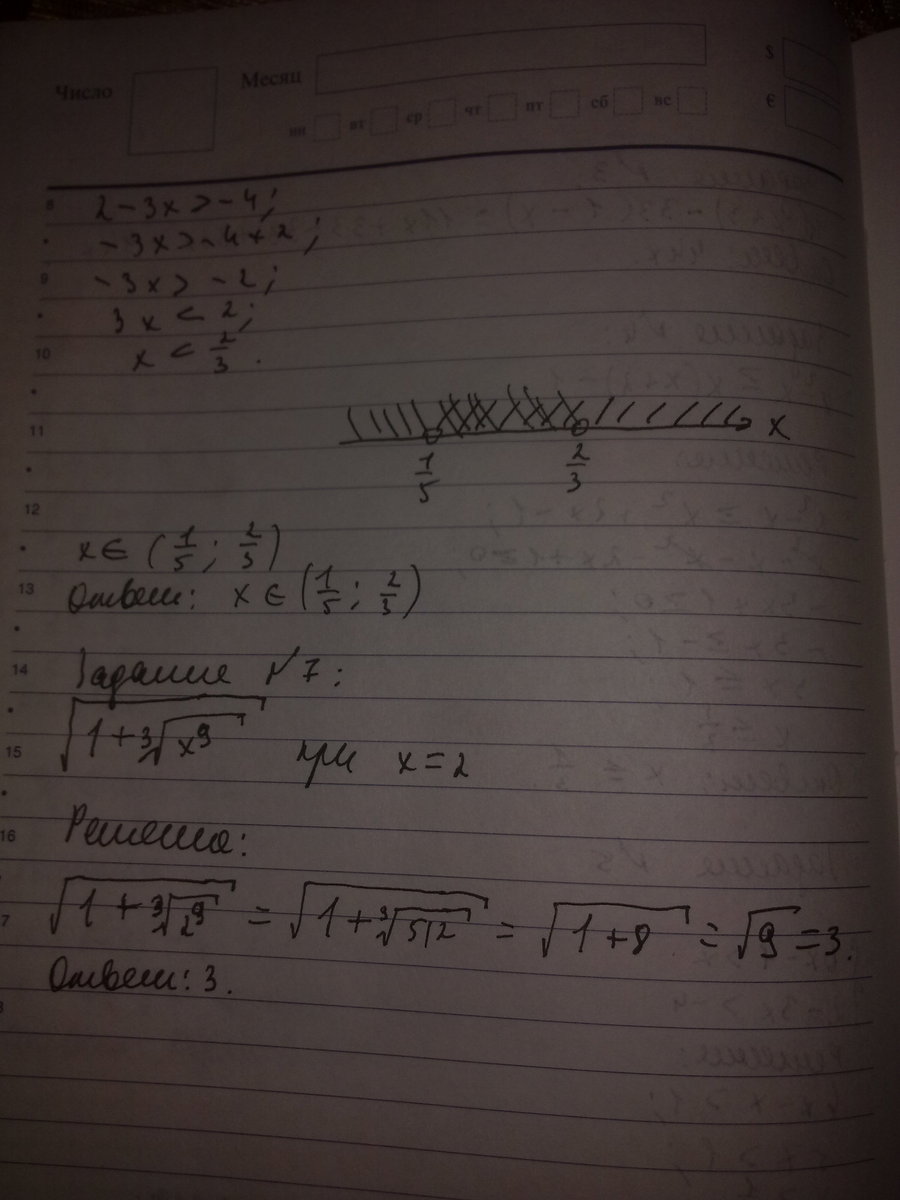 Число
Месяц
$
€
пн вт ср чт пт сб вс
8
2 - 3x > -4;
-3x > -4 + 2;
9
-3x > -2;
3x < 2;
10
x < 2/3.
11
x
1/5 2/3
12
x ∈ (1/5; 2/3)
13
Ответ: x ∈ (1/5; 2/3)
14
Задание №7:
√(1 + ∛(x⁹)) при x = 2
15
16
Решение:
7
√(1 + ∛(2⁹)) = √(1 + ∛512) = √(1 + 8) = √9 = 3.
Ответ: 3.
8